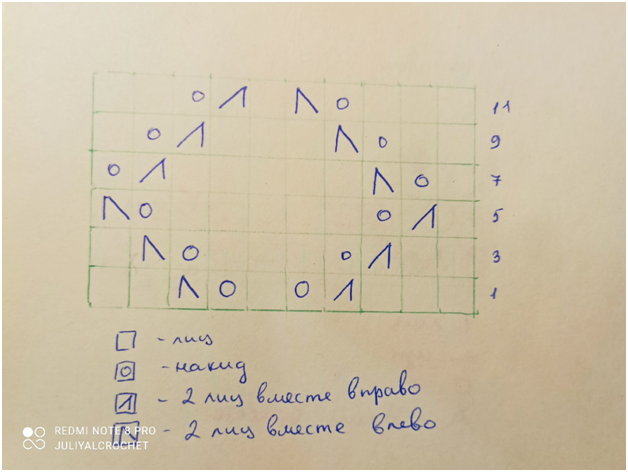 11
9
7
5
3
1
- лиц
- накид
- 2 лиц вместе вправо
- 2 лиц вместе влево
REDMI NOTE 8 PRO
JULIYALCROCHET